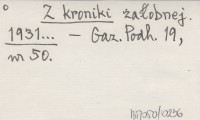 Z kroniki żałobnej.
1931... – Gaz. Podh. 19,
nr 50.